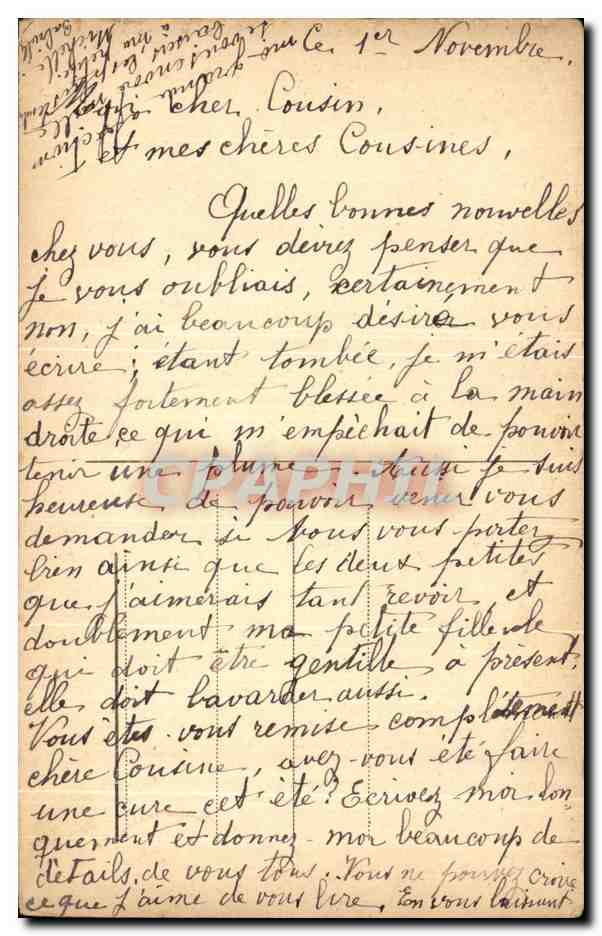 Ce 1er Novembre.
cher Cousin,
et mes chères Cousines,
Quelles bonnes nouvelles
chez vous, vous devrez penser que
je vous oubliais, certainement
non, j'ai beaucoup désiré vous
écrire; étant tombée, je m'étais
assez fortement blessée à la main
droite ce qui m'empêchait de pouvoir
tenir une plume. Aussi je suis
heureuse de pouvoir venir vous
demander si vous vous portez
bien ainsi que les deux petites
que j'aimerais tant revoir, et
doublement ma petite filleule
qui doit être gentille à présent,
elle doit bavarder aussi.
Vous êtes-vous remise complètement
chère Cousine, avez-vous été faire
une cure cet été? Ecrivez-moi lon-
guement et donnez-moi beaucoup de
détails, de vous tous. Vous ne pouvez croire
ce que j'aime de vous lire. En vous laissant
je vous envoie
baisers
à ma
petite
Michelle
CPAPHIL